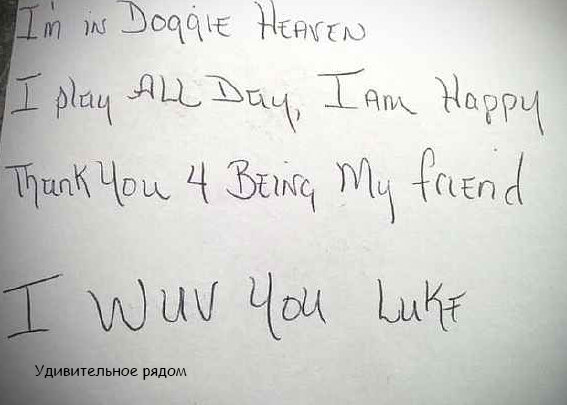 I'm in Doggie Heaven
I play All Day, I Am Happy
Thank You 4 Being My friend
I Wuv You Luke
Удивительное рядом